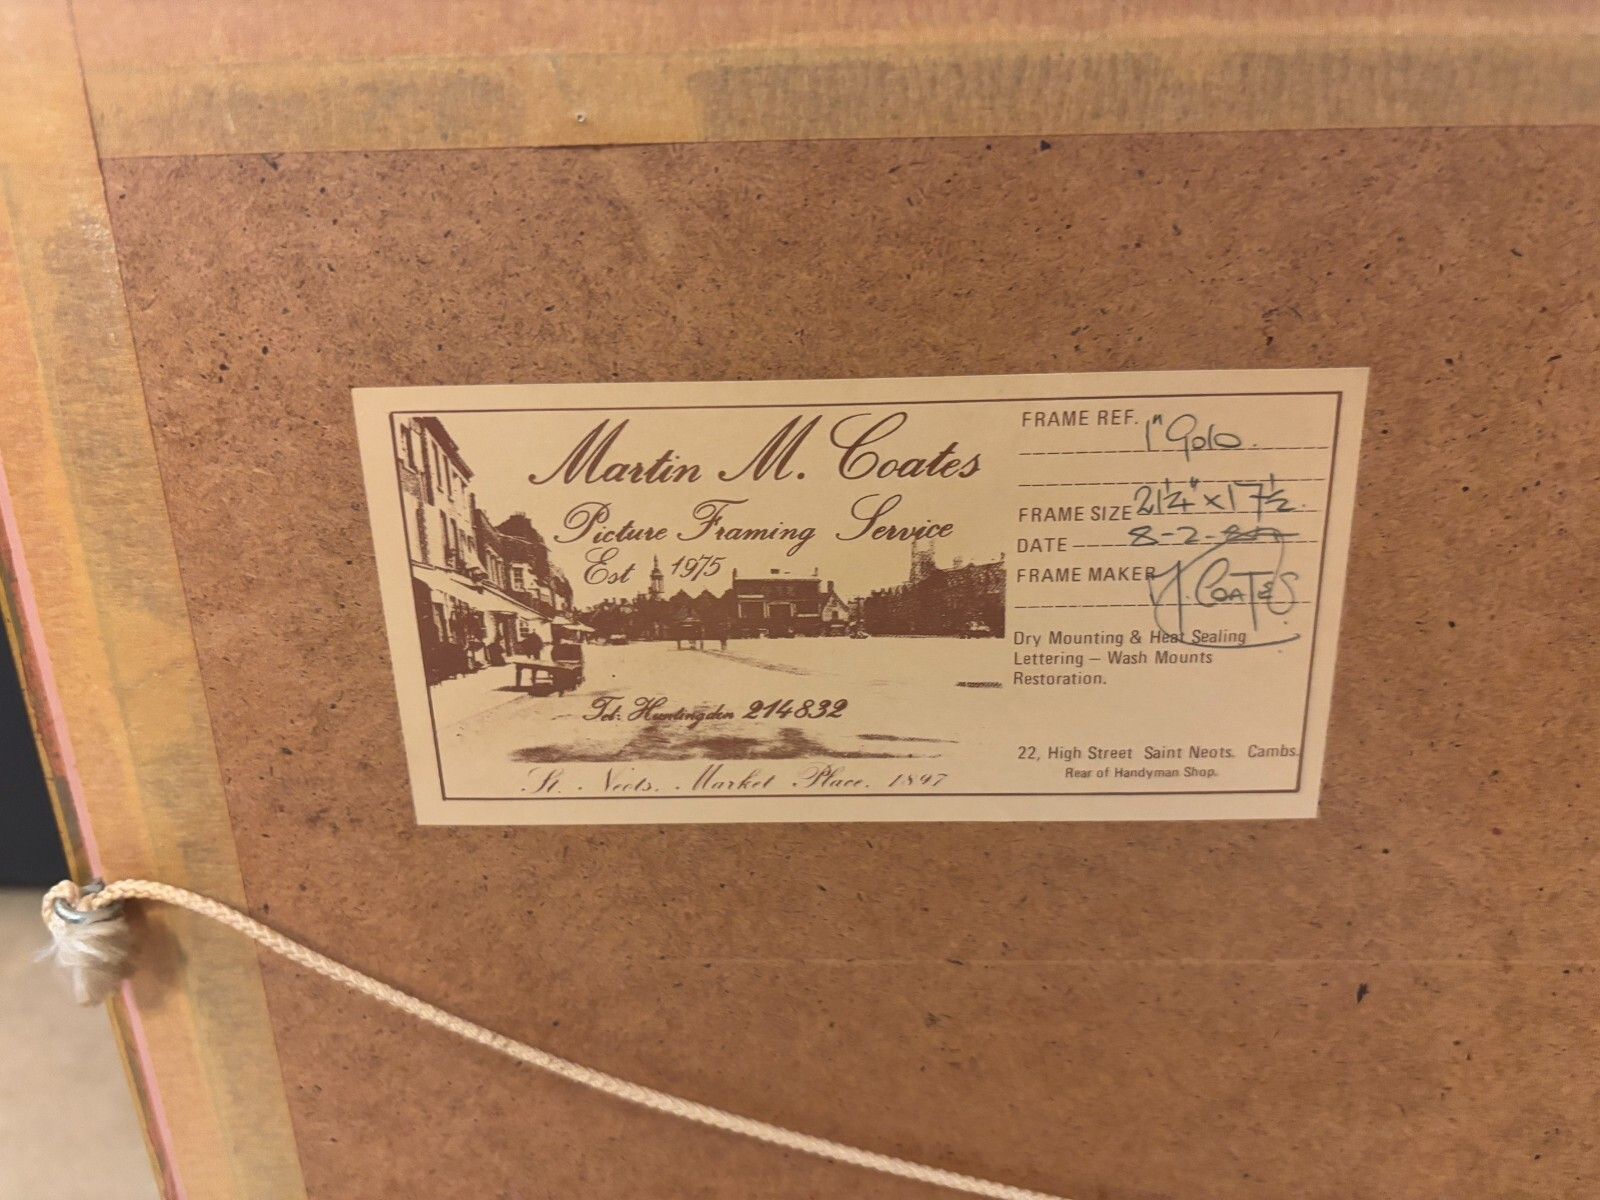 Martin M. Coates
Picture Framing Service
Est 1975
Tel: Huntingdon 214832
St. Neots. Market Place. 1897
FRAME REF. 1" Gold.
FRAME SIZE 21¼" x 17½.
DATE 8-2-
FRAME MAKER Coates
Dry Mounting & Heat Sealing
Lettering – Wash Mounts
Restoration.
22, High Street Saint Neots. Cambs.
Rear of Handyman Shop.